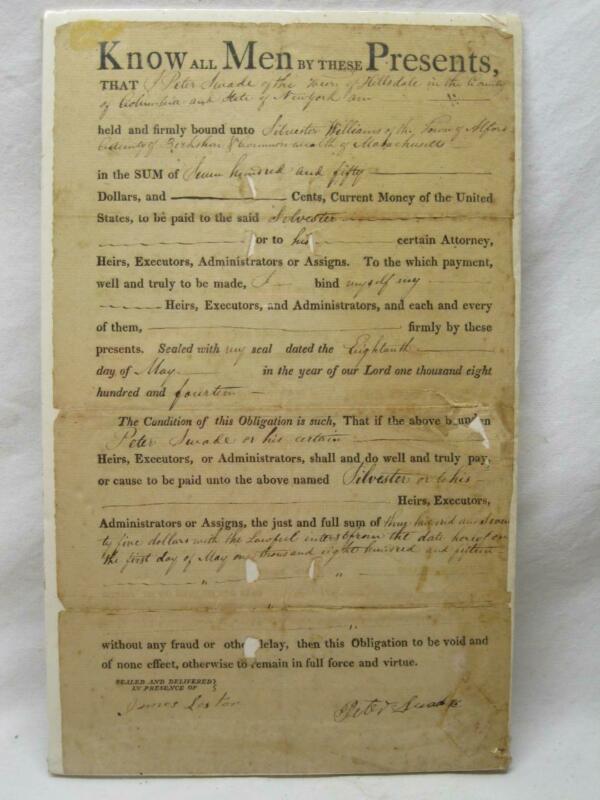 Know ALL Men BY THESE Presents,
THAT I Peter Swade of the Town of Hillsdale in the County
of Columbia and State of Newyork am
held and firmly bound unto Silvester Williams of the Town of Alford
County of Berkshire & Commonwealth of Massachusetts
in the SUM of Seven hundred and fifty
Dollars, and Cents, Current Money of the United
States, to be paid to the said Silvester
or to his certain Attorney,
Heirs, Executors, Administrators or Assigns. To the which payment,
well and truly to be made, I bind myself my
Heirs, Executors, and Administrators, and each and every
of them, firmly by these
presents. Sealed with my seal dated the Eightenth
day of May in the year of our Lord one thousand eight
hundred and fourteen
The Condition of this Obligation is such, That if the above bounden
Peter Swade or his certain
Heirs, Executors, or Administrators, shall and do well and truly pay,
or cause to be paid unto the above named Silvester or to his
Heirs, Executors,
Administrators or Assigns, the just and full sum of three hundred and seven
ty five dollars with the Lawful interest from the date hereof on
the first day of May one thousand eight hundred and fifteen
without any fraud or other delay, then this Obligation to be void and
of none effect, otherwise to remain in full force and virtue.
SEALED AND DELIVERED
IN PRESENCE OF
James
Peter Swade